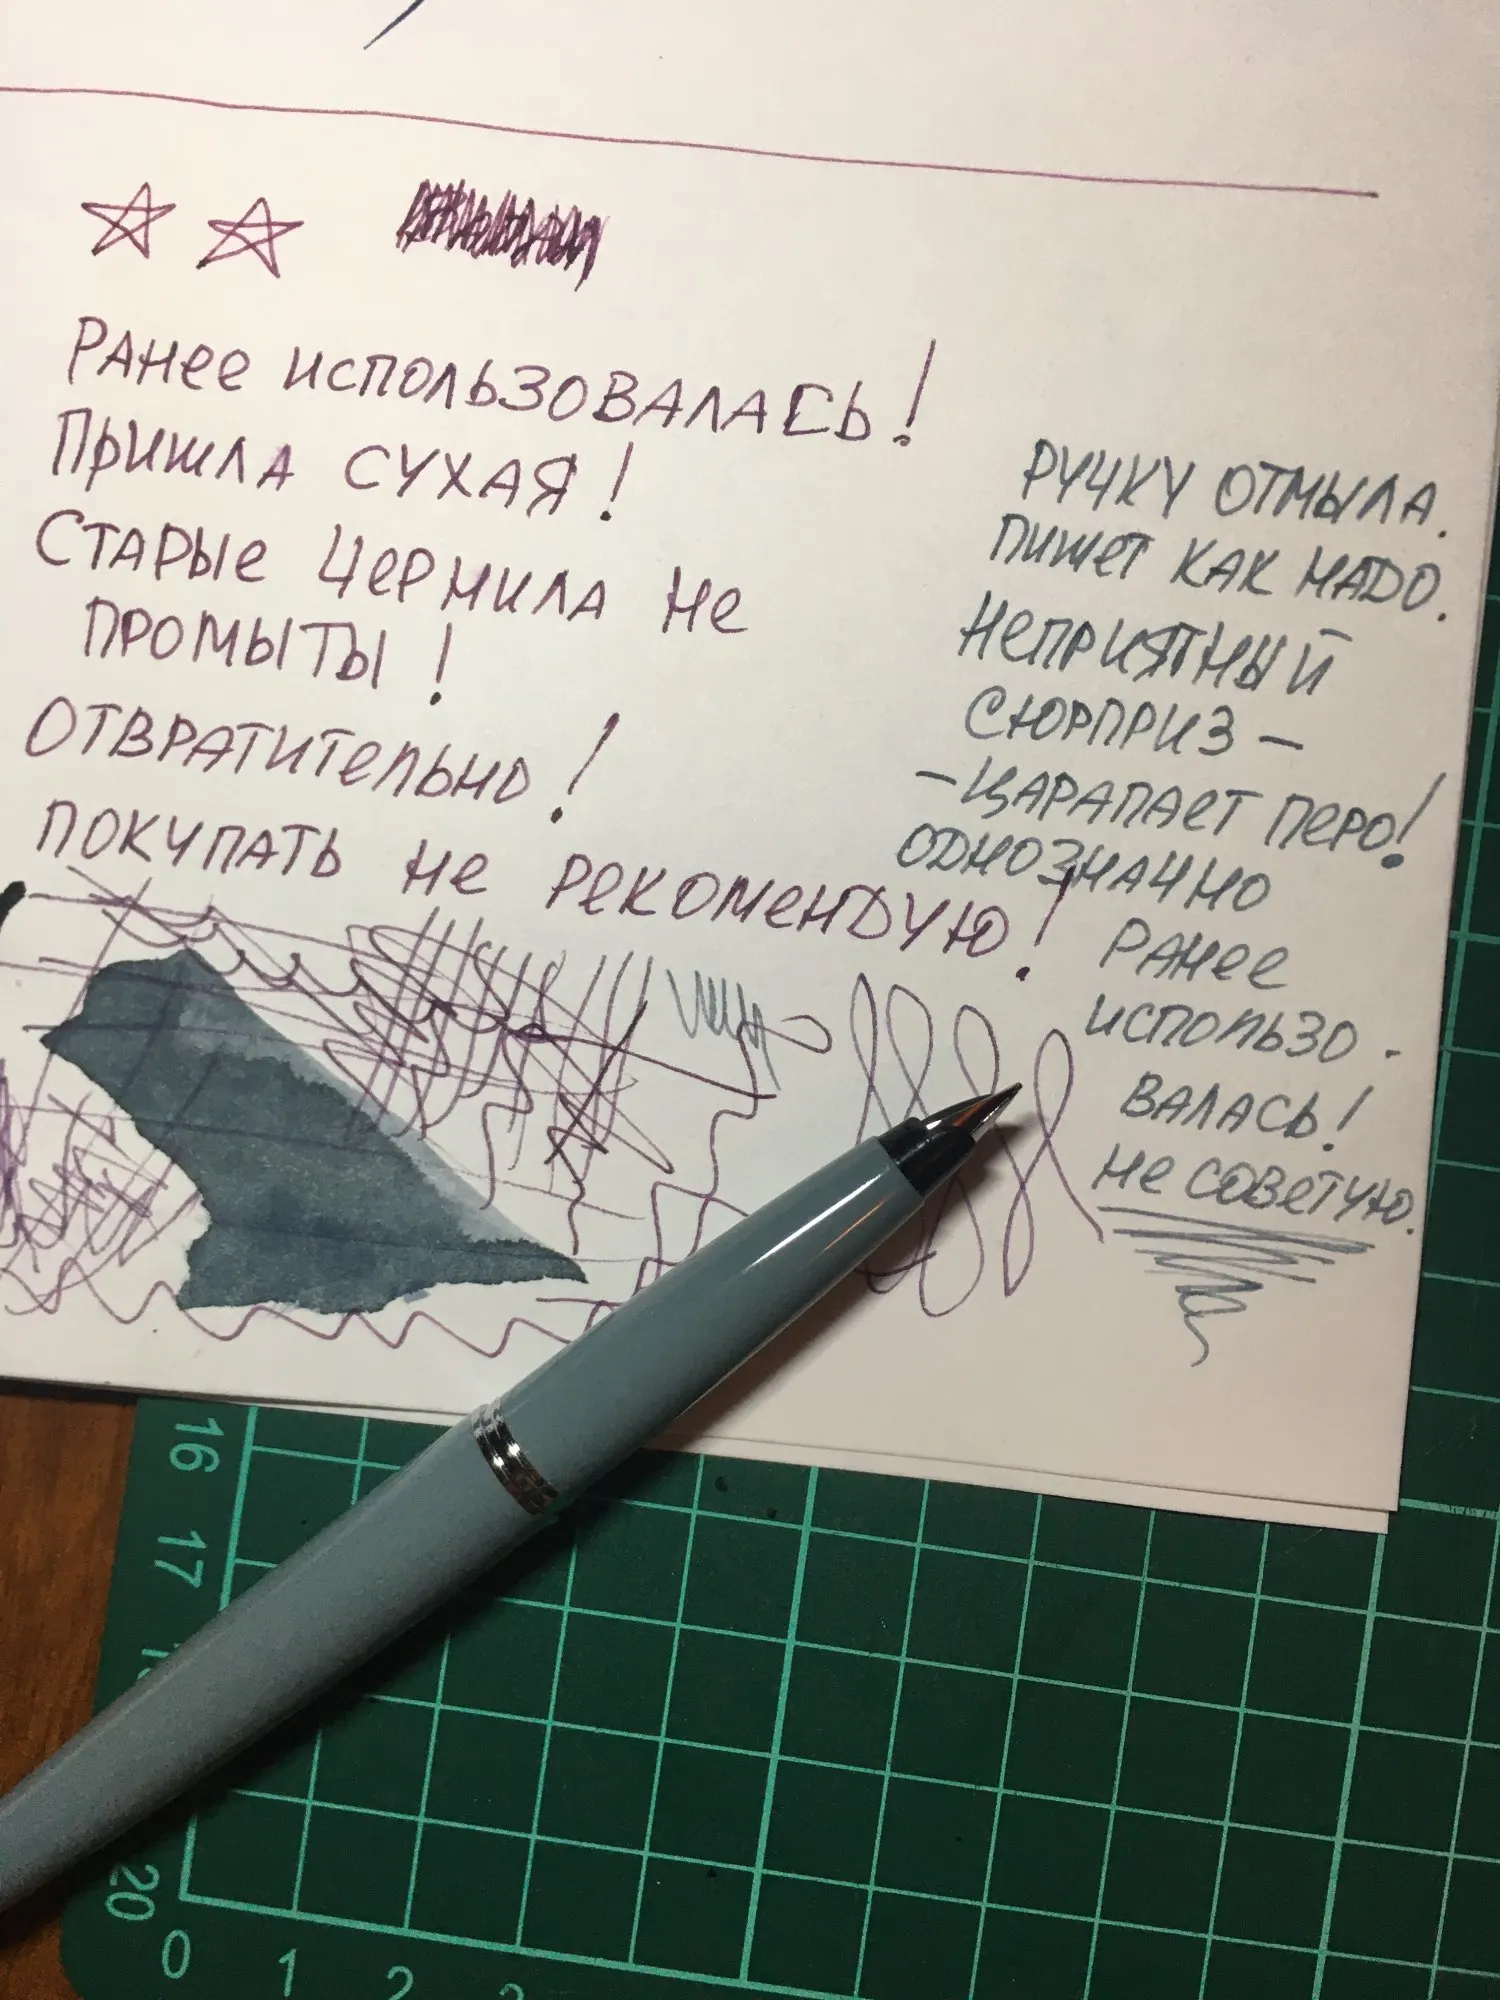 Ранее использовалась!
Пришла сухая!
Старые чермила не
промыты!
Отвратительно!
Покупать не рекомендую!
Ручку отмыла.
Пишет как надо.
Неприятный
сюрприз -
- царапает перо!
Однозначно
ранее
использо -
валась!
Не советую.
16
17
20
0
1
2
3